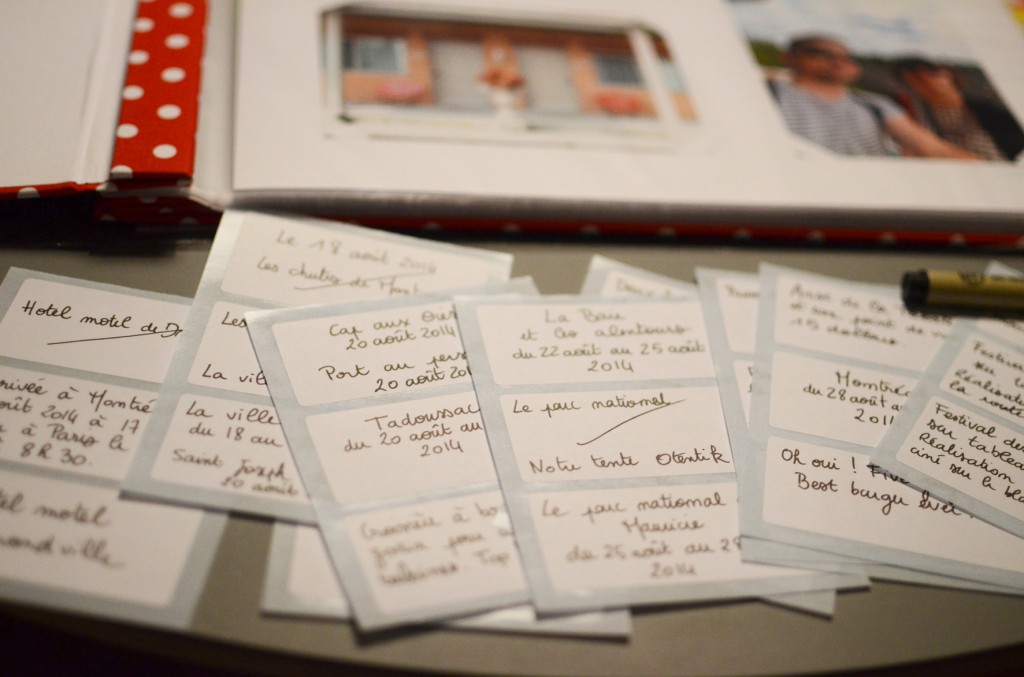 Hotel motel de
Arrivée à Montré
août 2014 à 17
à Paris le
8R30.
motel
Le 18 août 2014
Les chutes de Mont
Les
La vil
La ville
du 18 au
Saint Joseph
20 août
Cap aux
20 août 2014
Port au
20 août 20
Tadoussac
du 20 août au
2014
Croisière à bo
La Baie
et les alentours
du 22 août au 25 août
2014
Le parc national
Notre tente Otentik
Le parc national
Mauricie
du 25 août au 28
2014
15 dollars.
Montré
du 28 août a
201
Oh oui ! Five
Best burger ever !
Festiva
Réalisati
la route
Festival de
sur tablea
Réalisation
ciné sur le bla